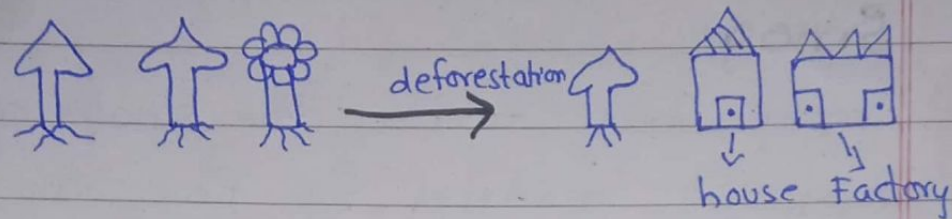 deforestation
house Factory